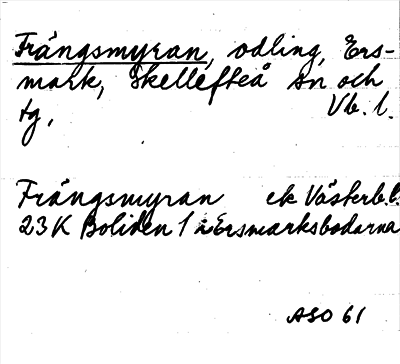 Frängsmyran, odling, Ers-
mark, Skellefteå sn och
tg, Vb. l.
Frängsmyran ek Västerb.l.
23K Boliden 1 i Ersmarksbodarna
ASO 61